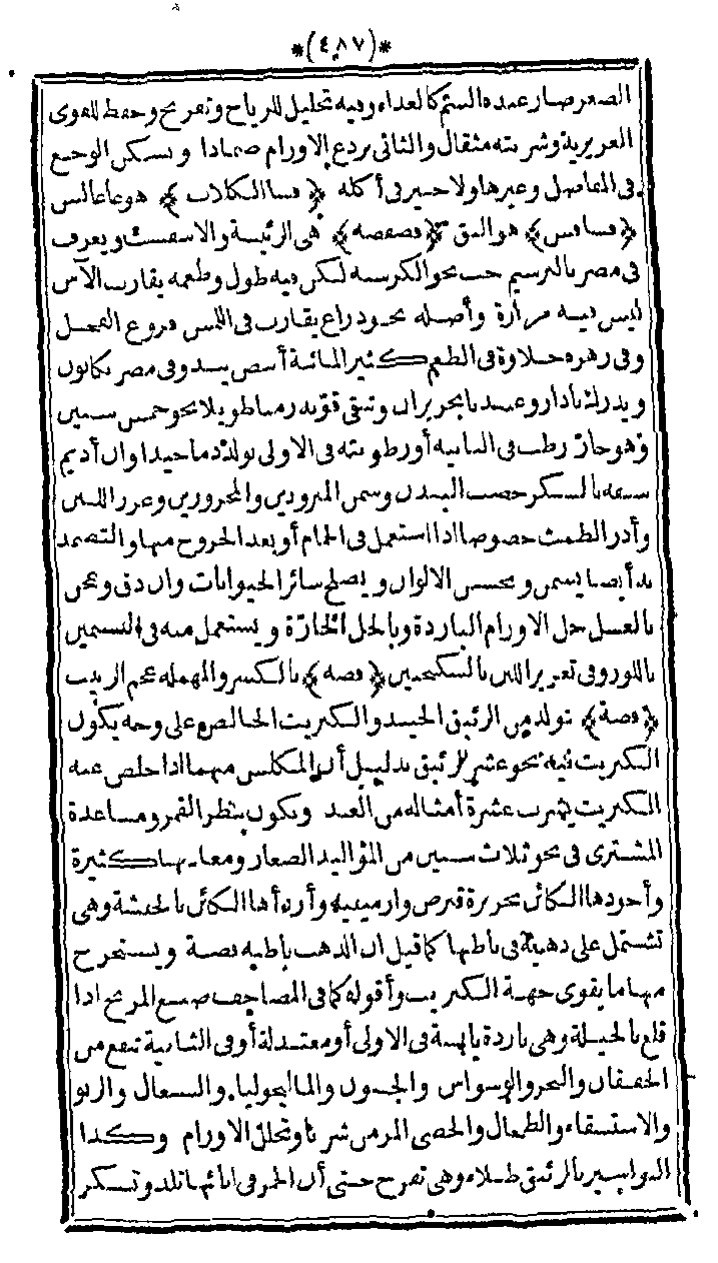 *(٤٨٧)*
الصغر صار عنده السم كالغذاء وفيه تحليل للرياح وتفريح وحفظ للقوى
الغريزية وشربته مثقال والثانى يردع الاورام ضمادا ويسكن الوجع
فى المفاصل وغيرها ولا خير فى أكله ﴿فسا الكلاب﴾ هو عاعالس
هو البق ﴿فصفصة﴾ هى الرئيسة والاسفست ويعرف
فى مصر بالبرسيم حب نحو الكرسنه لكن فيه طول وطعمه يقارب الآس
ليس فيه مرارة وأصله نحو ذراع يقارب فى اللمس فروع الفجل
وفى زهره حلاوة فى الطعم كثير المائية أبيض يبدو فى مصر بكانون
ويدرك باذار وعندنا بحزيران وتبقى قوته زمنا طويلا نحو خمس سنين
وهو حار رطب فى الثانية أو رطوبته فى الاولى يولد دما جيدا وان أديم
سفه بالسكر خصب البدن وسمن المبرودين والمحرورين وغزر اللبن
وأدر الطمث خصوصا اذا استعمل فى الحمام أو بعد الخروج منها والتضمد
به أيضا يسمن ويحسن الالوان ويصلح سائر الحيوانات وان دق وعجن
بالعسل حل الاورام الباردة وبالخل الحارّة ويستعمل منه فى التسمين
باللوز وفى تغزير اللبن بالسكنجبين ﴿فصه﴾ بالكسر والمهملة عجم الزبيب
﴿فضة﴾ تولد من الزئبق الجيد والكبريت الخالص على وجه يكون
الكبريت فيه نحو عشر الزئبق بدليل أن المكلس منها اذا خلص عنه
الكبريت يشرب عشرة أمثاله من العبد ويكون بنظر القمر ومساعدة
المشترى فى نحو ثلاث سنين من المواليد الصغار ومعادنها كثيرة
وأجودها الكائن بجزيرة قبرص وارمينية وأردأها الكائن بالحبشة وهى
تشتمل على ذهبية فى باطنها كما قيل ان الذهب باطنه فضة ويستخرج
منها ما يقوى جهة الكبريت وأقوله كما فى المصاحف صبغ المريخ اذا
قلع بالحيلة وهى باردة يابسة فى الاولى أو معتدلة أو فى الثانية تنفع من
الخفقان والبخر والوسواس والجنون والماليخوليا والسعال والربو
والاستسقاء والطحال والحصى المزمن شربا وتحلل الاورام وكذا
البواسير بالزئبق طلاء وهى تفرح حتى أن الخمر فى انائها تلذ وتسكر